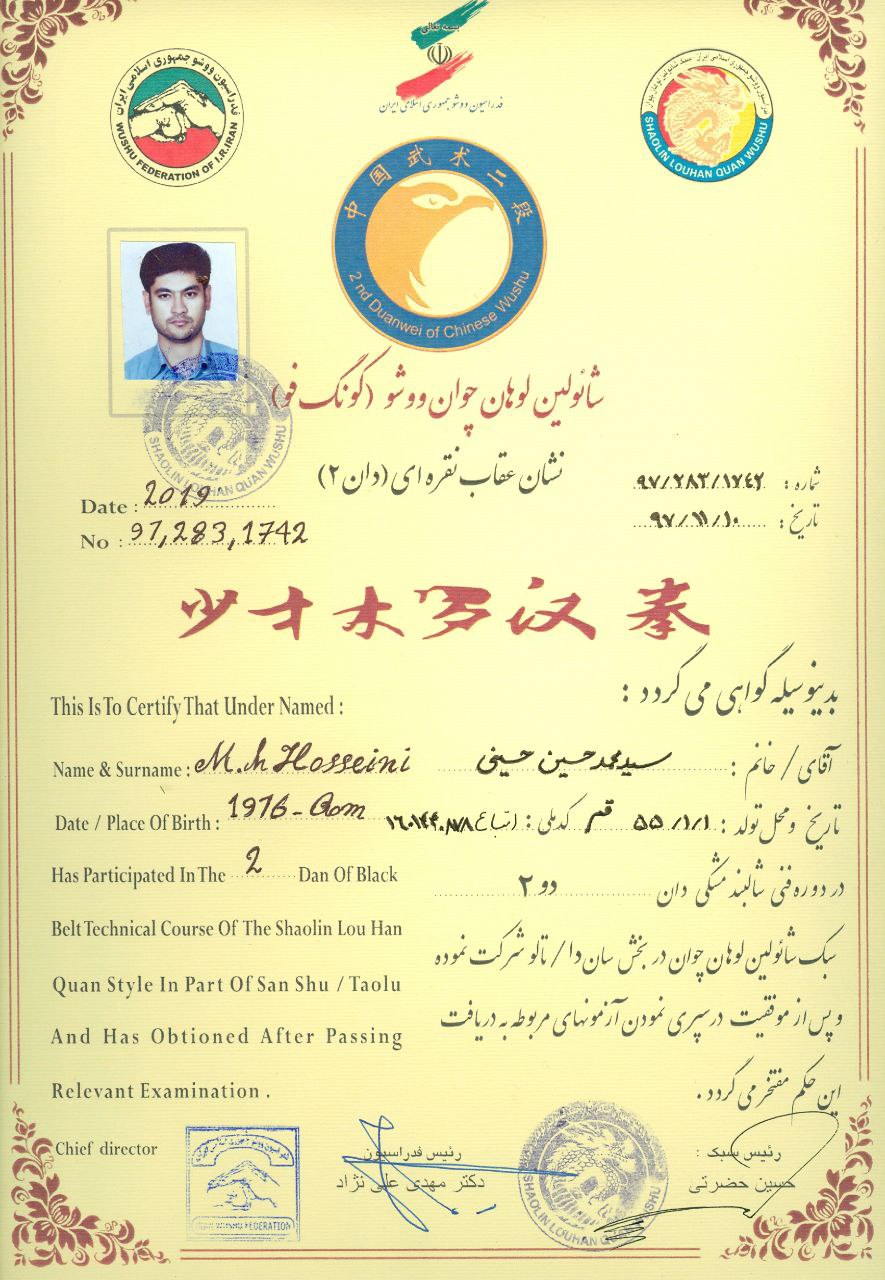 بسمه تعالی
فدراسیون ووشو جمهوری اسلامی ایران
فدراسیون ووشو جمهوری اسلامی ایران
WUSHU FEDERATION OF I.R.IRAN
SHAOLIN LOUHAN QUAN WUSHU
中国武术二段
2 nd Duanwei of Chinese Wushu
شائولین لوهان چوان ووشو (کونگ فو)
نشان عقاب نقره ای (دان ۲)
SHAOLIN LOUHAN QUAN WUSHU
شماره : ۹۷/۲۸۳/۱۷۴۲
تاریخ : ۹۷/۱۱/۱۰
Date : 2019
No : 97,283,1742
少才木罗汉拳
بدینوسیله گواهی می گردد :
This Is To Certify That Under Named :
آقای / خانم : سید محمد حسین حسینی
Name & Surname : M.h Hosseini
تاریخ و محل تولد : ۵۵/۱/۱ قم کدملی : اتباع
Date / Place Of Birth : 1976 - Qom
در دوره فنی شالبند مشکی دان دو ۲
Has Participated In The 2 Dan Of Black
سبک شائولین لوهان چوان در بخش سان دا / تالو شرکت نموده
Belt Technical Course Of The Shaolin Lou Han
Quan Style In Part Of San Shu / Taolu
و پس از موفقیت در سپری نمودن آزمونهای مربوطه به دریافت
And Has Obtioned After Passing
این حکم مفتخر می گردد .
Relevant Examination .
Chief director
رئیس فدراسیون
دکتر مهدی علی نژاد
رئیس سبک :
حسین حضرتی
IRAN WUSHU FEDERATION
SHAOLIN LOUHAN QUAN WUSHU